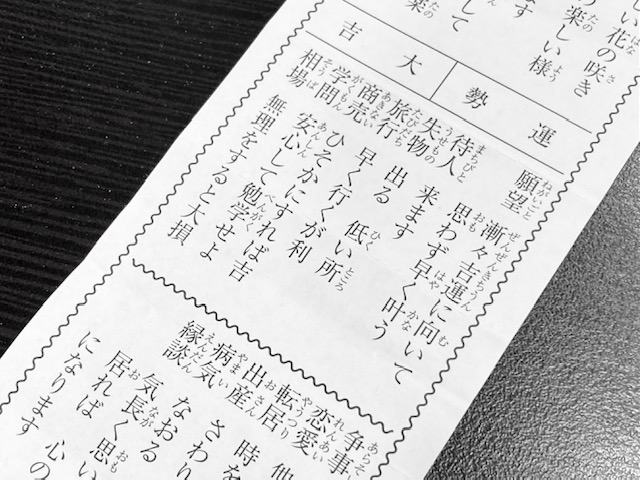 い花の咲き
の楽しい様
ます
して
楽
運勢 大吉
願望 漸々吉運に向いて
思わず早く叶う
待人 来ます
失物 出る 低い所
旅行 早く行くが利
商売 ひそかにすれば吉
学問 安心して勉学せよ
相場 無理をすると大損
争事
恋愛 他
転居 時を
出産 さわり
病気 なおる
縁談 気長く思い
居れば 心の
になります